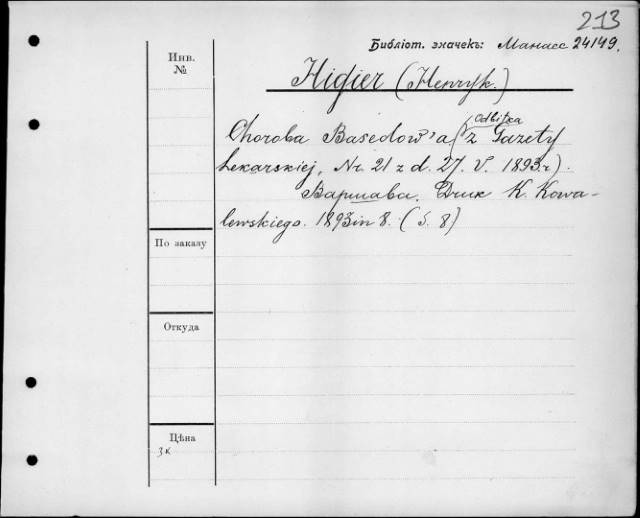 213
Библіот. значекъ: Манасс 24149.
Инв. №
Higier (Henryk.)
Odbitka
Choroba Basedow'a (z Gazety
Lekarskiej, Nr. 21 z d. 27. V. 1893 r).
Варшава. Druk K. Kowa-
lewskiego. 1893 in 8. (S. 8)
По заказу
Откуда
Цѣна
3к